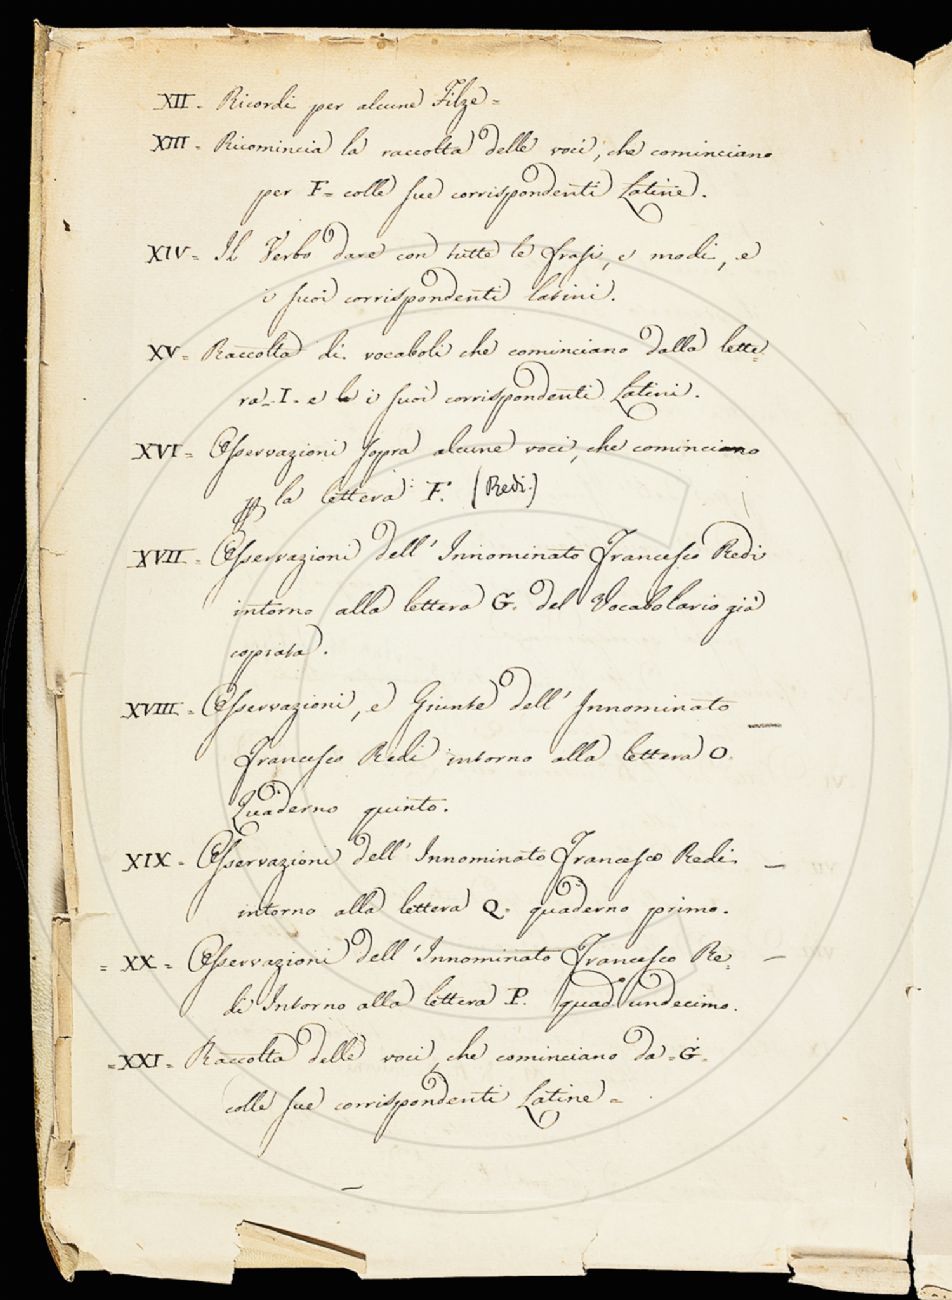 XII - Ricordi per alcune Filze =
XIII - Ricomincia la raccolta delle voci, che cominciano
per F = colle sue corrispondenti Latine.
XIV = Il Verbo dare con tutte le frasi, e modi, e
i suoi corrispondenti latini.
XV = Raccolta di vocaboli che cominciano dalla lette=
ra - I - e i suoi corrispondenti Latini.
XVI = Osservazioni sopra alcune voci, che cominciano
la lettera F. (Redi.)
XVII - Osservazioni dell' Innominato Francesco Redi
intorno alla lettera G. del Vocabolario già
copiata.
XVIII - Osservazioni, e Giunte dell' Innominato
Francesco Redi intorno alla lettera O.
Quaderno quinto.
XIX - Osservazioni dell' Innominato Francesco Redi
intorno alla lettera Q = quaderno primo.
= XX = Osservazioni dell' Innominato Francesco Re=
di Intorno alla lettera P. quad.o undecimo.
= XXI = Raccolta delle voci, che cominciano da = G =
colle sue corrispondenti Latine =